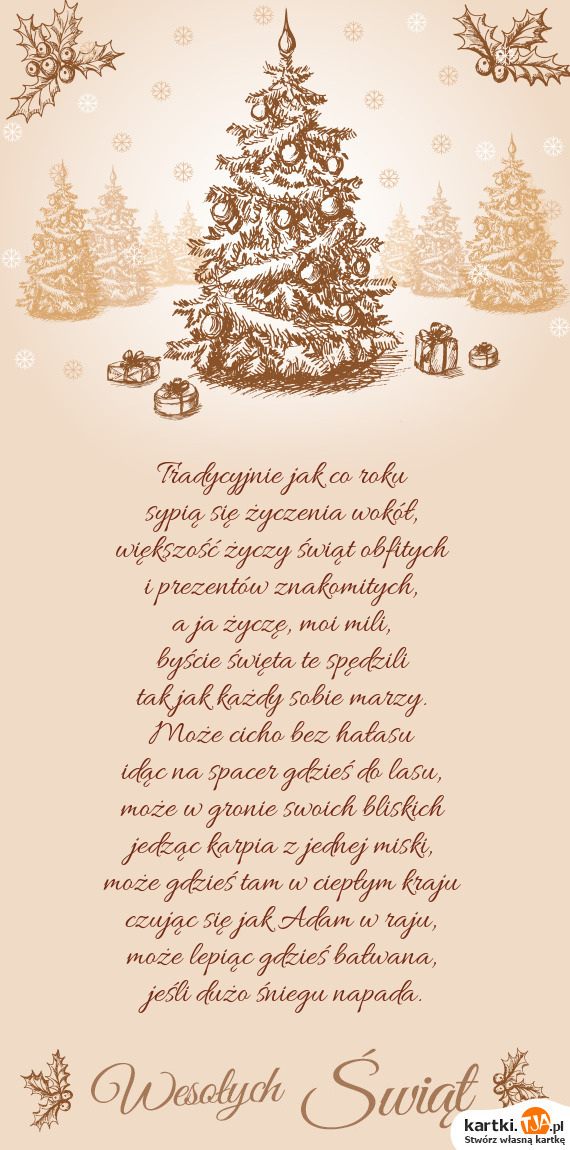 Tradycyjnie jak co roku
sypią się życzenia wokół,
większość życzy świąt obfitych
i prezentów znakomitych,
a ja życzę, moi mili,
byście święta te spędzili
tak jak każdy sobie marzy.
Może cicho bez hałasu
idąc na spacer gdzieś do lasu,
może w gronie swoich bliskich
jedząc karpia z jednej miski,
może gdzieś tam w ciepłym kraju
czując się jak Adam w raju,
może lepiąc gdzieś bałwana,
jeśli dużo śniegu napada.
Wesołych Świąt
kartki.TJA.pl
Stwórz własną kartkę